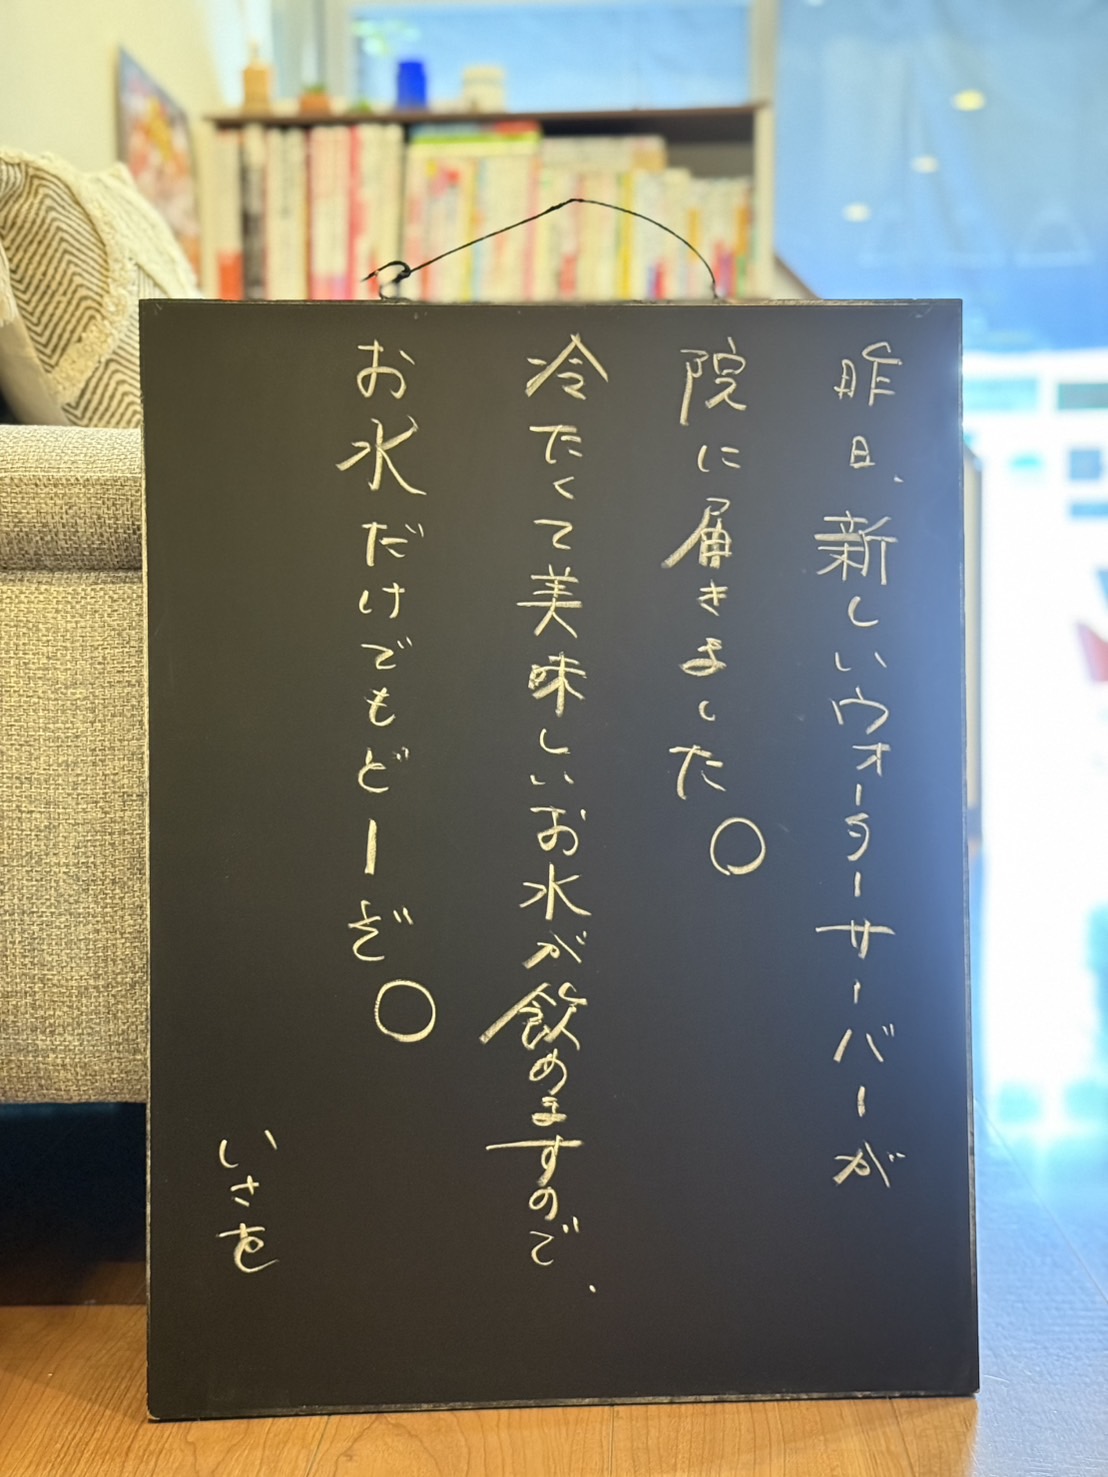 昨日、新しいウォーターサーバーが
院に届きました。
冷たくて美味しいお水が飲めますので、
お水だけでもどーぞ。
いさを